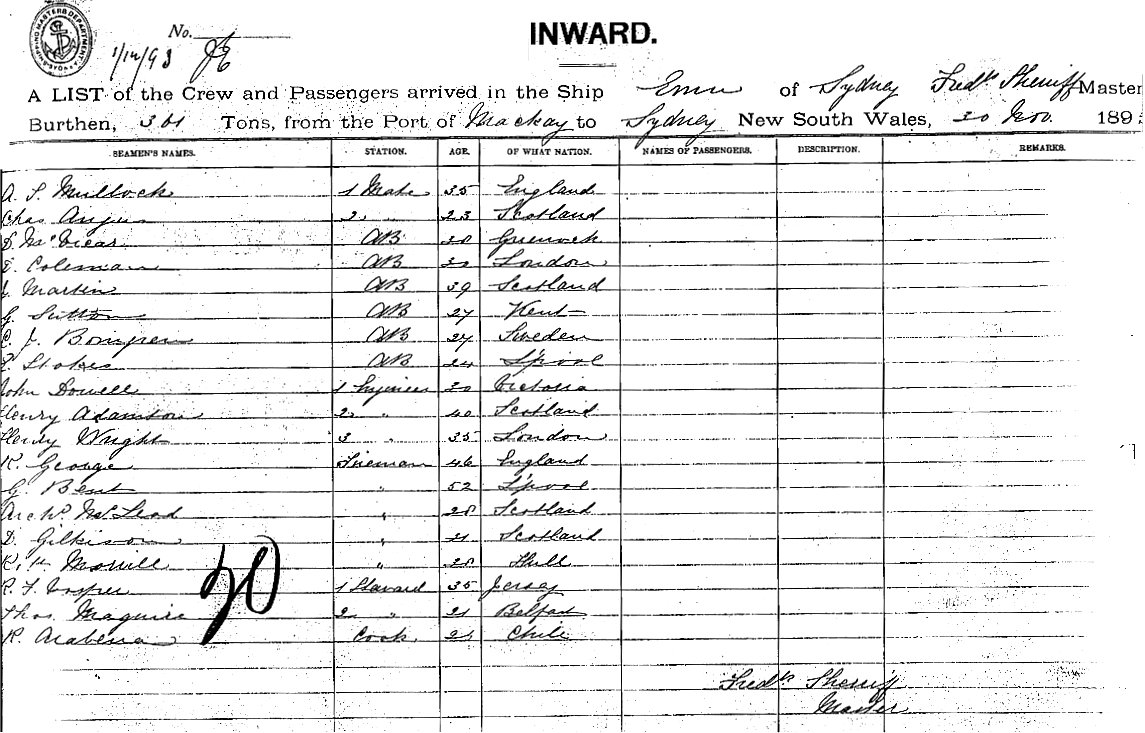 SHIPPING MASTERS DEPARTMENT
No.
INWARD.
1/12/93
A LIST of the Crew and Passengers arrived in the Ship of Sydney Fredk Sherriff Master
Burthen, 361 Tons, from the Port of Mackay to Sydney New South Wales, 30 Nov. 189
SEAMEN'S NAMES. STATION. AGE. OF WHAT NATION. NAMES OF PASSENGERS. DESCRIPTION. REMARKS.
A. S. Mullock 1 Mate 35 England
Chas Angus 2 " 23 Scotland
McVicar AB 30 Greenock
Coleman AB 30 London
J. Martin AB 39 Scotland
G. Sutton AB 27 Kent
C. J. AB 27 Sweden
Stokes AB 24 L'pool
John Dowells 1 Engineer 30 Victoria
Henry Adamson 2 " 40 Scotland
Henry Wright 3 " 35 London
R. George Fireman 46 England
G. Bent " 52 L'pool
Archd McLeod " 28 Scotland
D. Gilkison " 21 Scotland
" 28 Hull
R. F. Vosper 1 Steward 35 Jersey
Thos. Maguire 2 " 21 Belfast
R. Cook Chili
20
Fredk Sherriff
Master